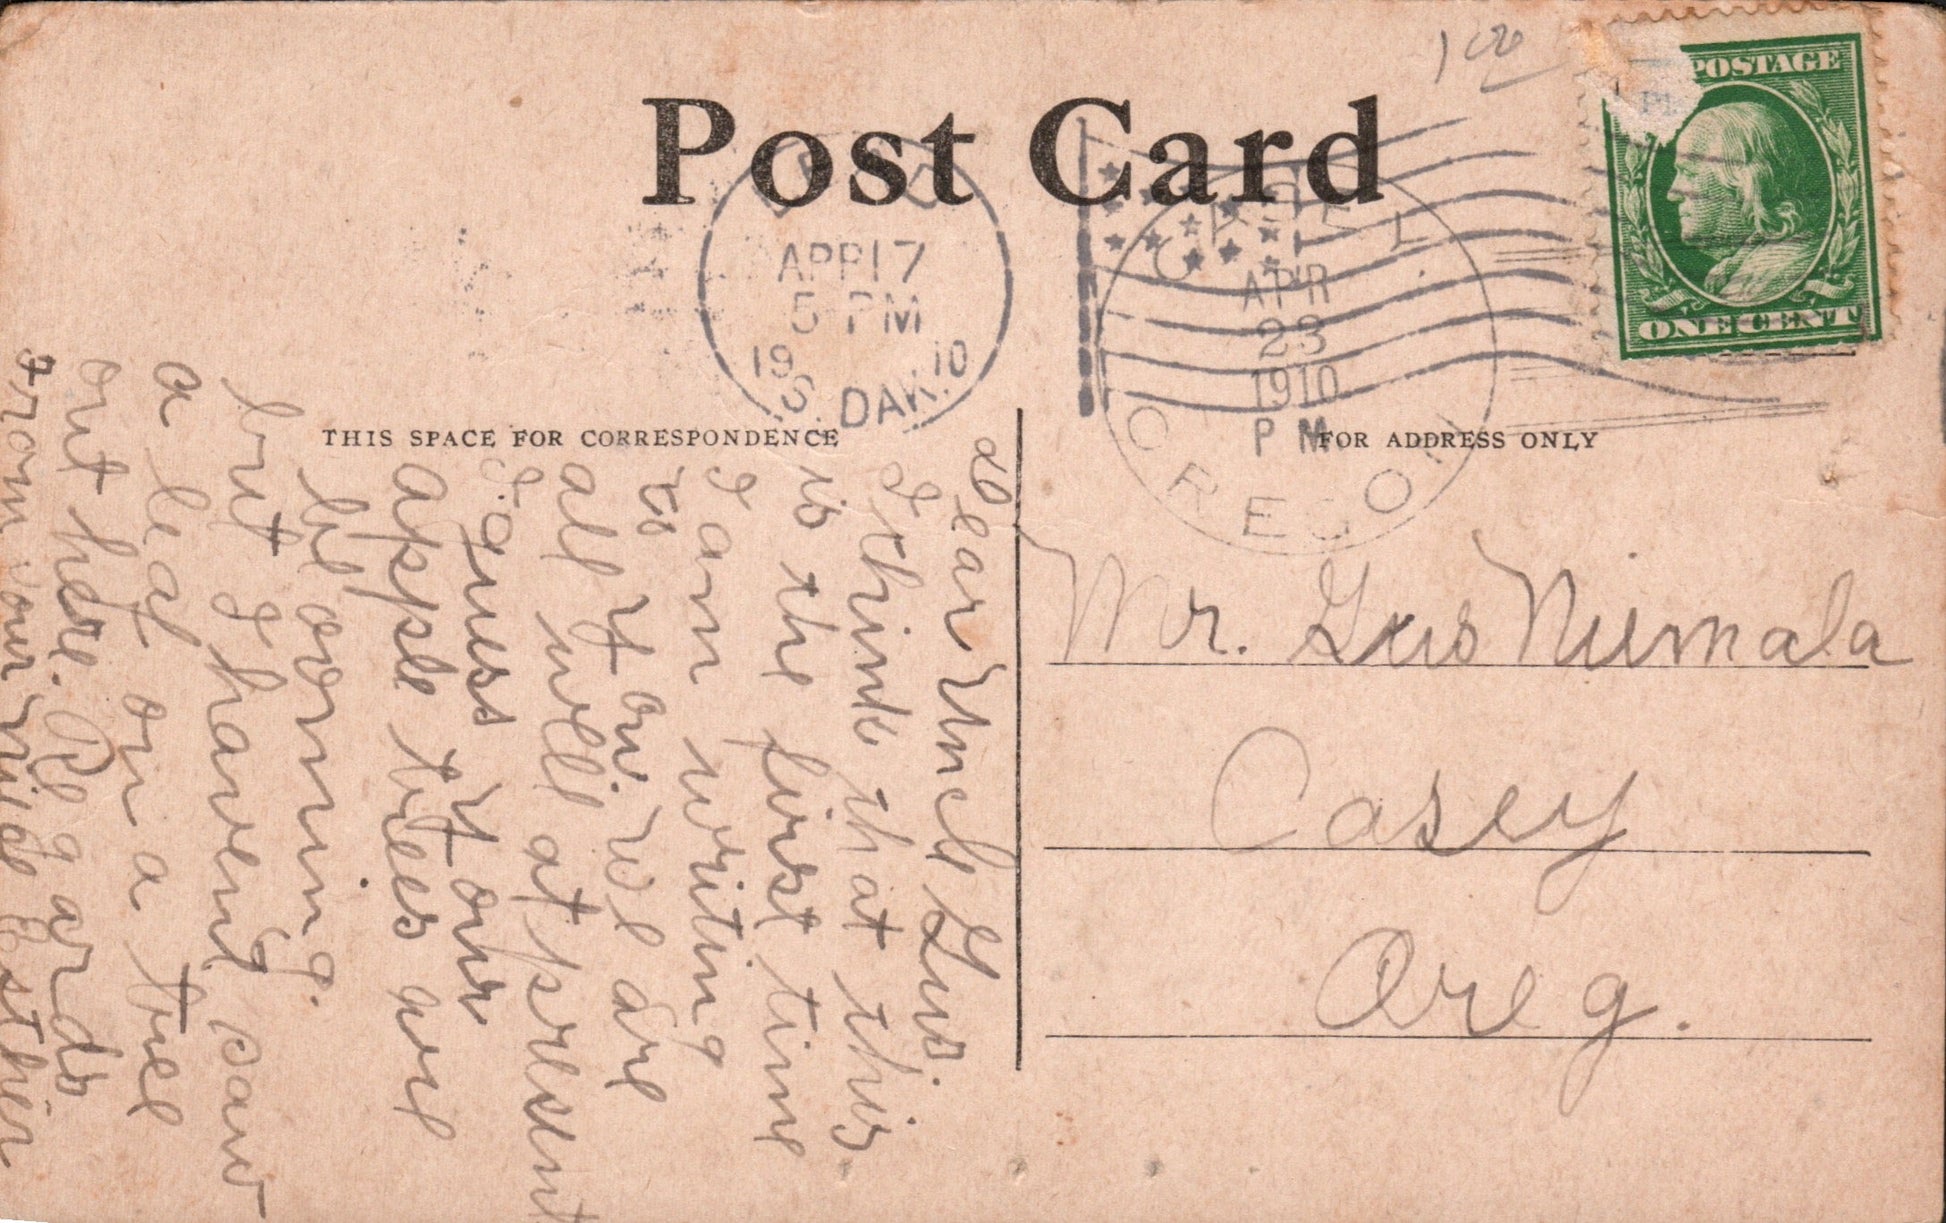 1 00
POSTAGE
ONE CENT
Post Card
LEAD
APR 17
5-PM
19 10
S. DAK.
APR
23
1910
P M
OREGON
THIS SPACE FOR CORRESPONDENCE
FOR ADDRESS ONLY
Dear Uncle Gus.
I think that this
is the first time
I am writing
to you. We are
all well at present
I guess your
apple trees are
blooming.
but I havent saw
a leaf on a tree
out here. Regards
from your niece Esther
Mr. Gus Niemala
Casey
Oreg.